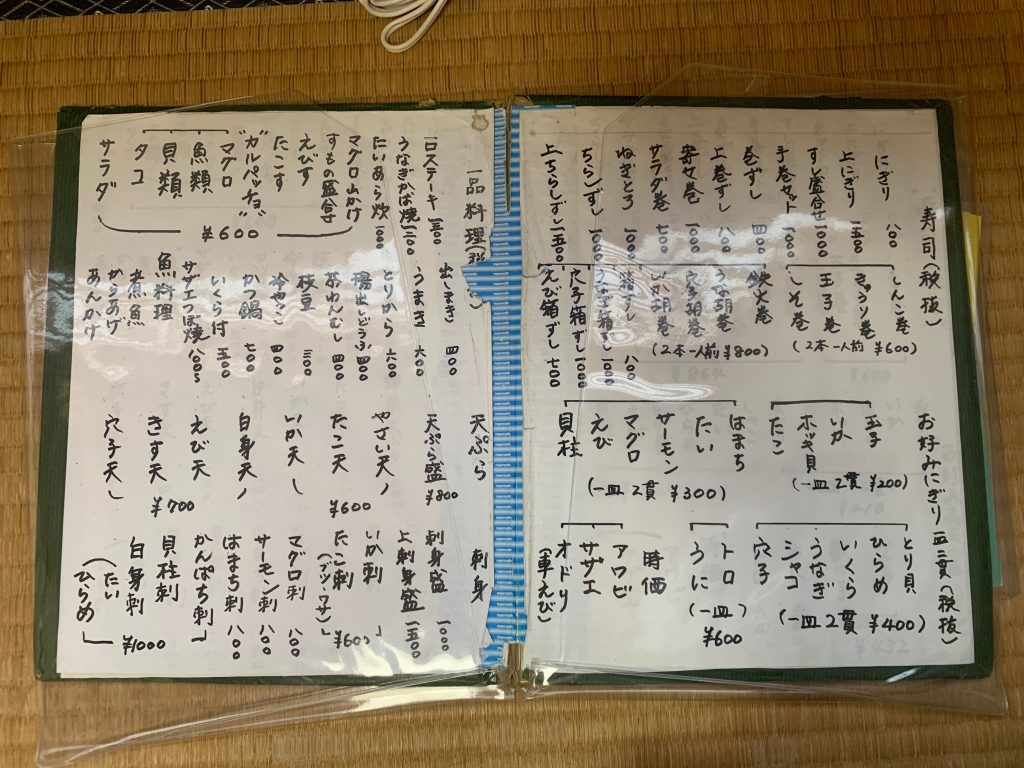 寿司(税抜)
にぎり 八〇〇
上にぎり 一五〇〇
すし盛合せ 一〇〇〇
手巻セット 一〇〇〇
巻ずし 四〇〇
上巻ずし 八〇〇
寄せ巻 一〇〇〇
サラダ巻 七〇〇
ねぎとろ 一〇〇〇
ちらしずし 一〇〇〇
上ちらしずし 一五〇〇
しんこ巻
きゅうり巻
玉子巻
しそ巻
(2本一人前 ¥600)
鉄火巻
うな胡巻
穴子胡巻
いか胡巻
(2本一人前 ¥800)
箱ずし 八〇〇
うなぎ箱ずし 一〇〇〇
穴子箱ずし 一〇〇〇
えび箱ずし 七〇〇
お好みにぎり 一皿二貫(税抜)
玉子
いか
ホッキ貝
たこ
(一皿2貫 ¥200)
はまち
たい
サーモン
マグロ
えび
貝柱
(一皿2貫 ¥300)
とり貝
ひらめ
いくら
うなぎ
シャコ
穴子
(一皿2貫 ¥400)
トロ
うに
(一皿)
¥600
時価
アワビ
サザエ
オドリ
(車えび)
一品料理(税
一口ステーキ 一五〇〇
うなぎかば焼 一二〇〇
たいあら炊 一〇〇〇
マグロ山かけ
すもの盛合せ
えびす
たこす
"カルパッチョ"
マグロ
魚類
貝類
タコ
サラダ
¥600
出しまき 四〇〇
うまき 六〇〇
とりから 六〇〇
揚出しどうふ 四〇〇
茶わんむし 四〇〇
枝豆 三〇〇
冷やっこ 四〇〇
かつ鍋 七〇〇
いくら付 五〇〇
サザエつぼ焼 八〇〇~
魚料理
煮魚
からあげ
あんかけ
天ぷら
天ぷら盛 ¥800
やさい天
たこ天
いか天
¥600
白身天
えび天
きす天
穴子天
¥700
刺身
刺身盛 一〇〇〇
上刺身盛 一五〇〇
いか刺
たこ刺
(ブツ・マサ)
¥600
マグロ刺 八〇〇
サーモン刺 八〇〇
はまち刺 八〇〇
かんぱち刺
貝柱刺
白身刺
(たい
ひらめ)
¥1000